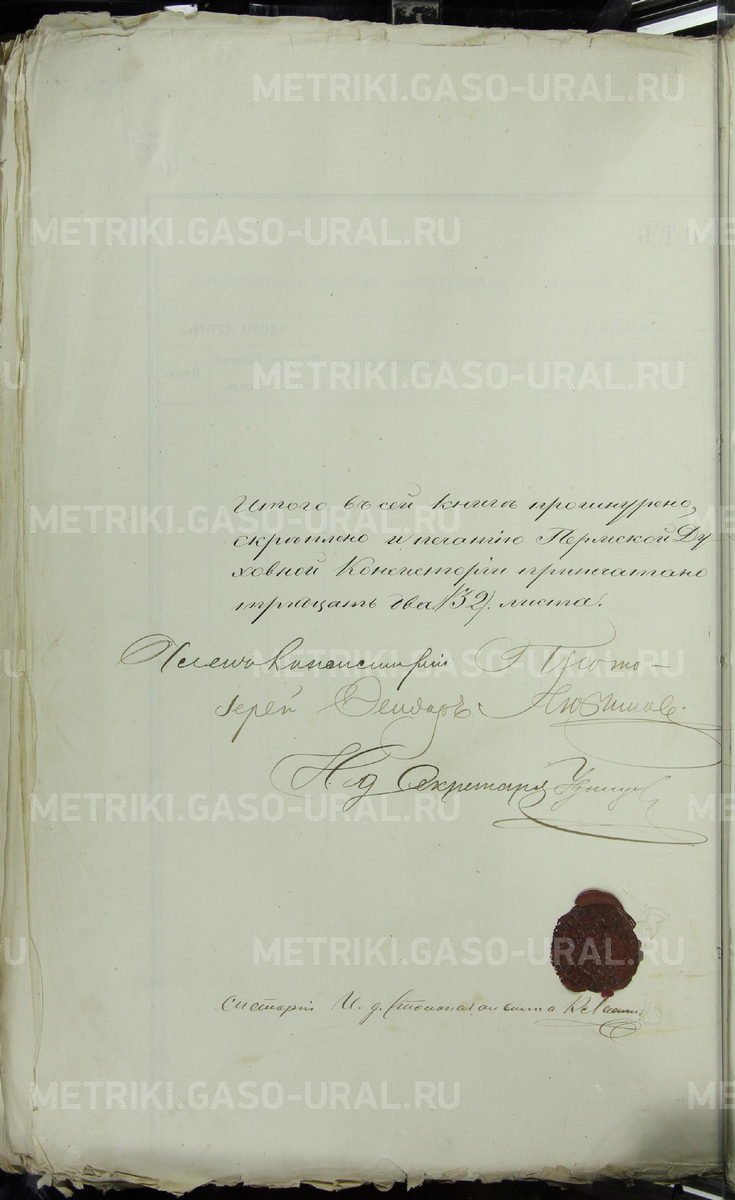 METRIKI.GASO-URAL.RU
METRIKI.GASO-URAL.RU
METRIKI.GASO-URAL.RU
Итого въ сей книгѣ прошнуровано,
скрѣплено и печатію Пермской Ду-
ховной Консисторіи припечатано
тридцать два /32/. листа.
METRIKI.GASO-URAL.RU
Членъ Консисторіи Прото-
іерей Ѳеодоръ
METRIKI.GASO-URAL.RU
И. д. Секретаря
METRIKI.GASO-URAL.RU
METRIKI.GASO-URAL.RU
систоріи И. д. Столоначальника
METRIKI.GASO-URAL.RU